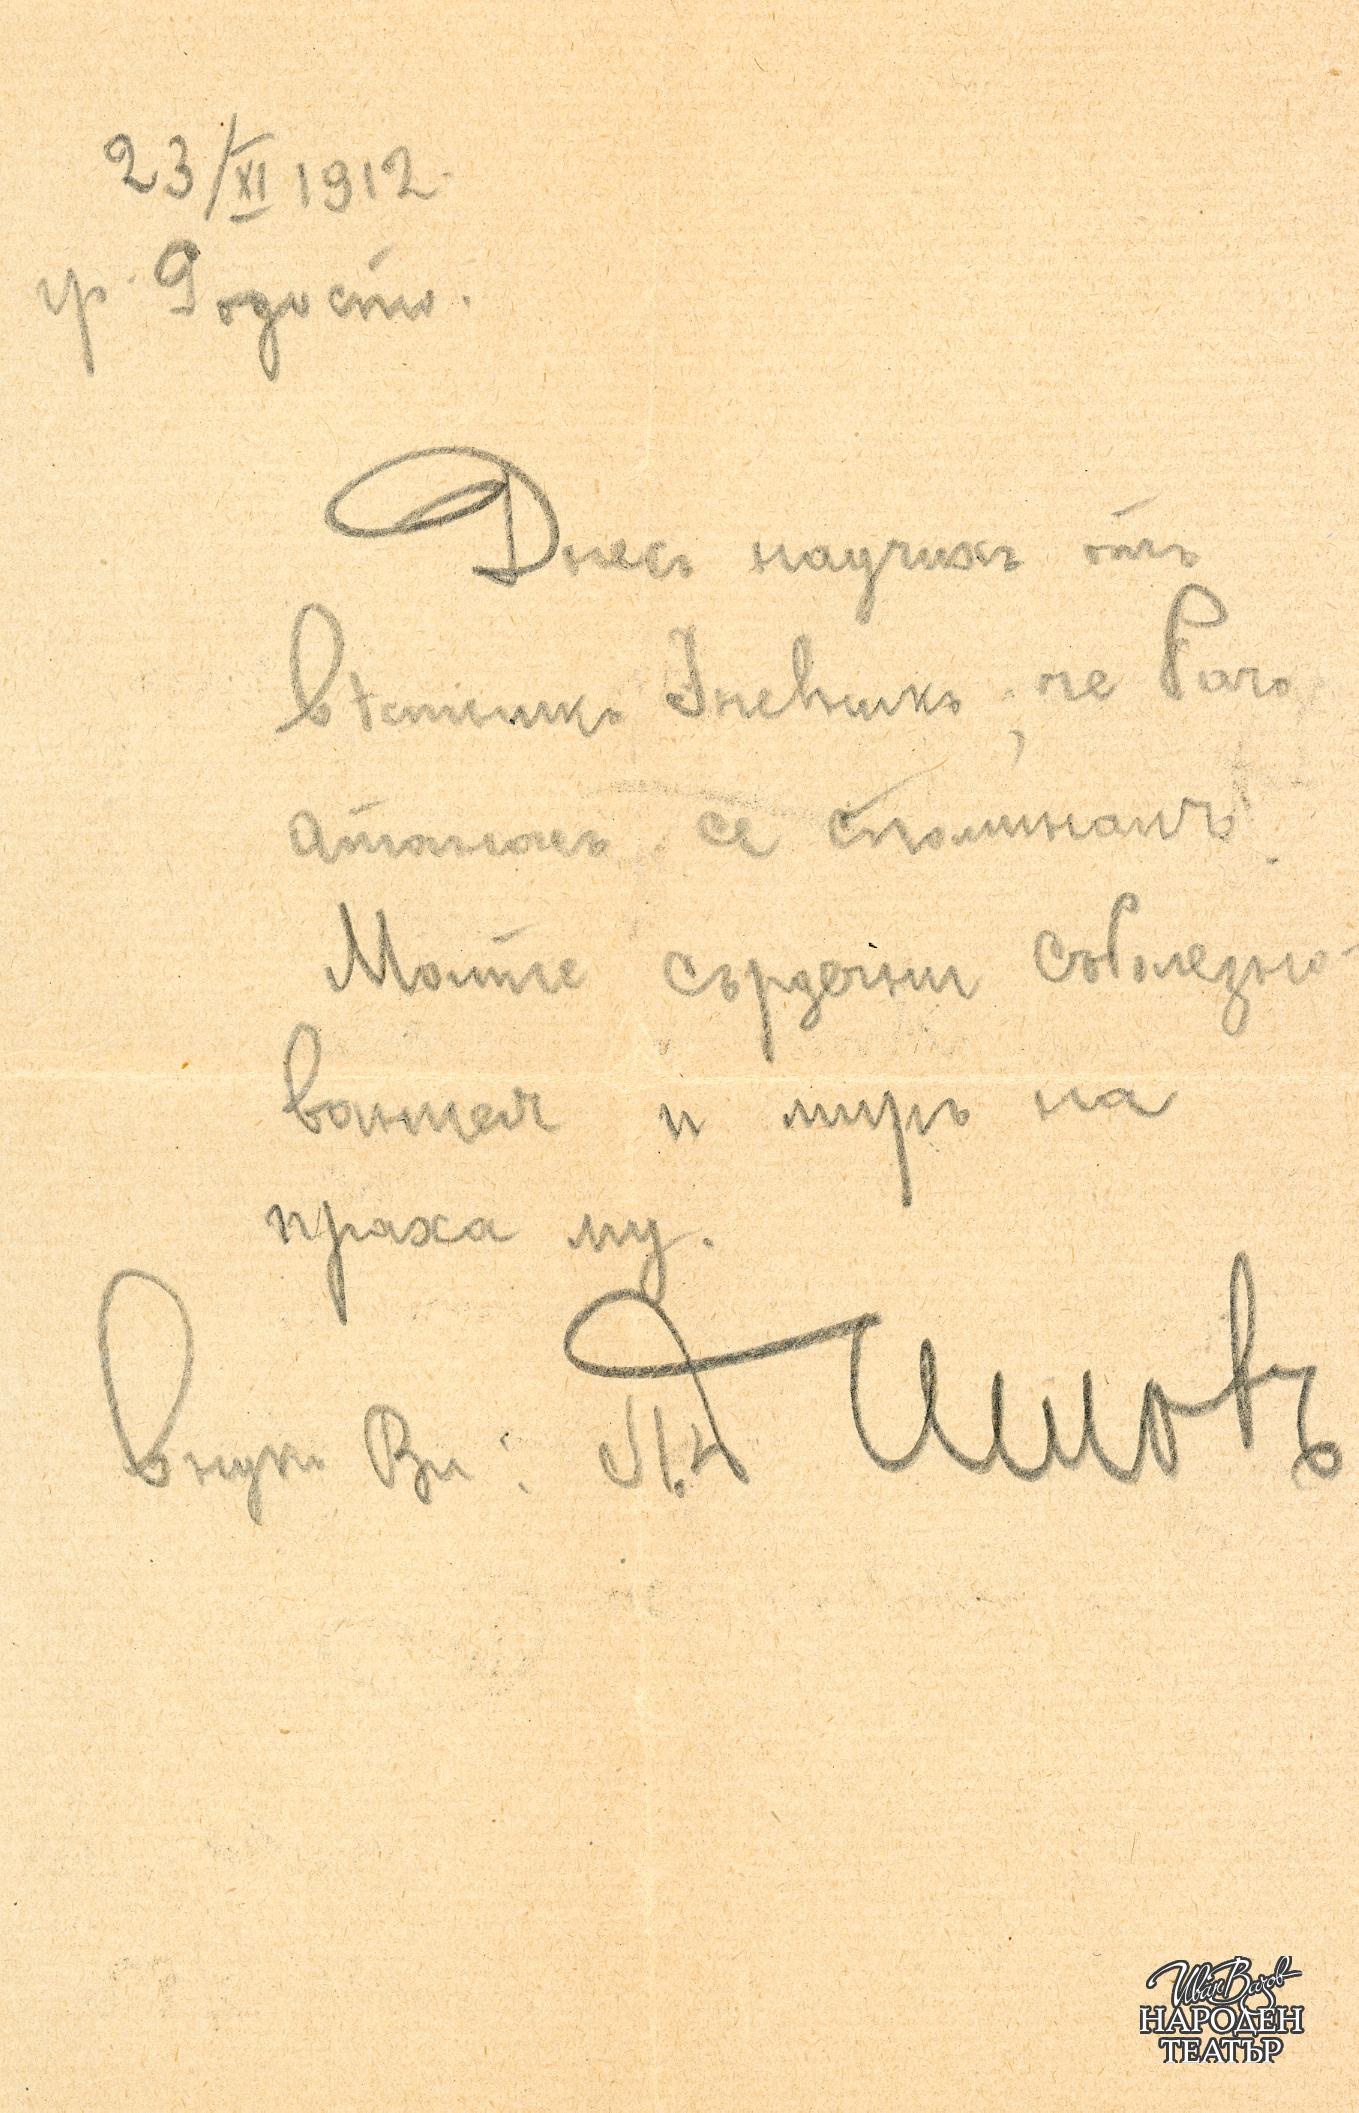 23/XI 1912.
гр. Родосто.
Днесъ научихъ отъ
вѣстникъ Дневникъ, че
се споминалъ.
Моите сърдечни съболезно-
вания и миръ на
праха му.
Внукъ Ви:
Иван Вазов
НАРОДЕН
ТЕАТЪР